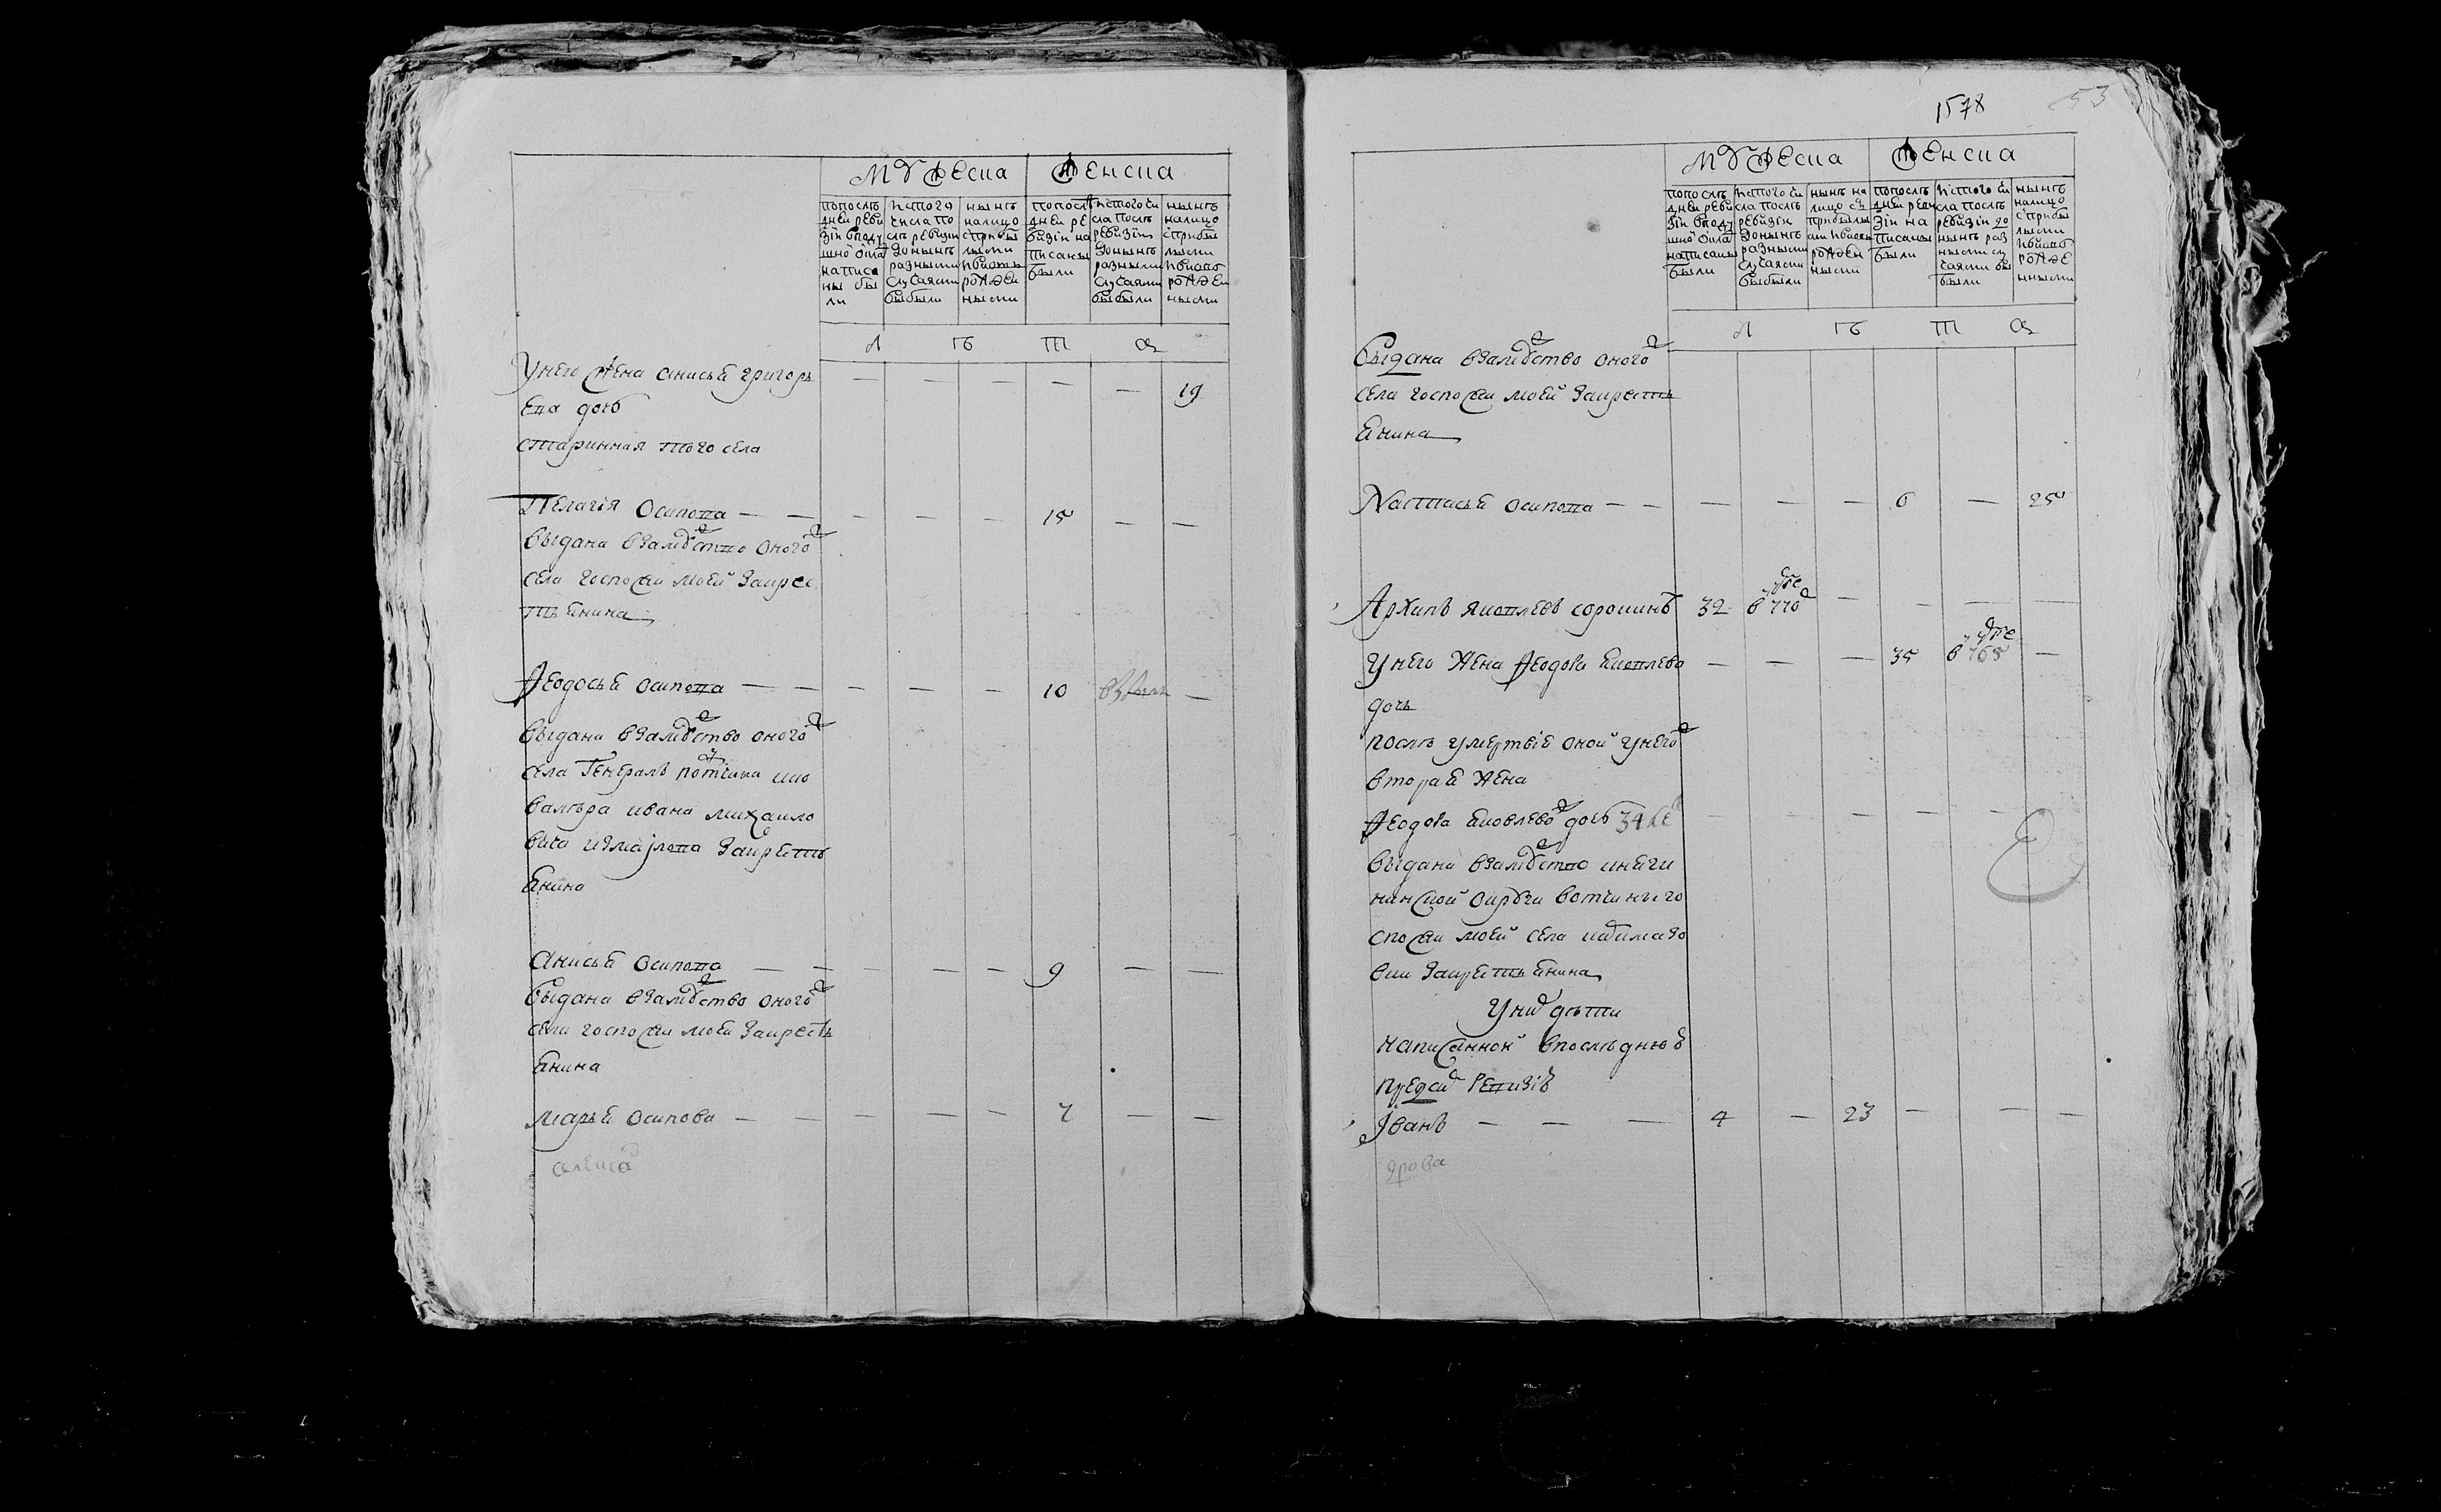 мужеска
женска
попослѣ
дней реви
зiи вподу
шной окла
написа
ны бы
ли
изтого
числа по
слѣ ревизiи
доныне
разными
случаями
выбыли
нынѣ
налицо
сприбы
лыми
ивновь
рожден
ными
попослѣ
дней ре
визiи на
писаны
были
изтого чи
сла послѣ
ревизiи
доныне
разными
случаями
выбыли
нынѣ
налицо
сприбы
лыми
ивновь
рожден
ными
Л ѣ т а
Унего жена анисья григорь
ева дочь — — — — — 19
старинная того села
Пелагiя осипова — — — — — 15 — —
выдана взамужство оного
села госпожи моей закрес
тьянина
Феодосья осипова — — — — — 10 —
выдана взамужство оного
села генералъ
ивана михаило
вича измаiлова закресть
янина
анисья осипова — — — — — 9 — —
выдана взамужство оного
села госпожи моей закресть
янина
марья осипова — — — — — 7 — —
1578
53
мужеска
женска
попослѣ
дней реви
зiи вподу
шной окла
написаны
были
изтого чи
сла послѣ
ревизiи
доныне
разными
случаями
выбыли
нынѣ на
лицо съ
прибылы
ми ивновь
рожден
ными
попослѣ
дней реви
зiи на
писаны
были
изтого чи
сла послѣ
ревизiи до
нынѣ раз
ными слу
чаями вы
были
нынѣ
налицо
сприбы
лыми
ивновь
рожде
нными
Л ѣ т а
Выдана взамужство оного
села госпожи моей закресть
янина
Настасья осипова — — — — — 6 — 25
Архипъ яковлевъ сорокинъ 32 в 770 — — — —
Унего жена Феодора яковлева — — — 35 в 765 —
дочь
послѣ умертвiя оной унего
вторая жена
Феодора яковлева дочь 34
выдана взамужство икяги
нинской округи вотчины го
спожи моей села
закрестьянина
Унихъ дѣти
написанной впоследней
предсимъ ревизiи
Iванъ — — — 4 — 23 — — —